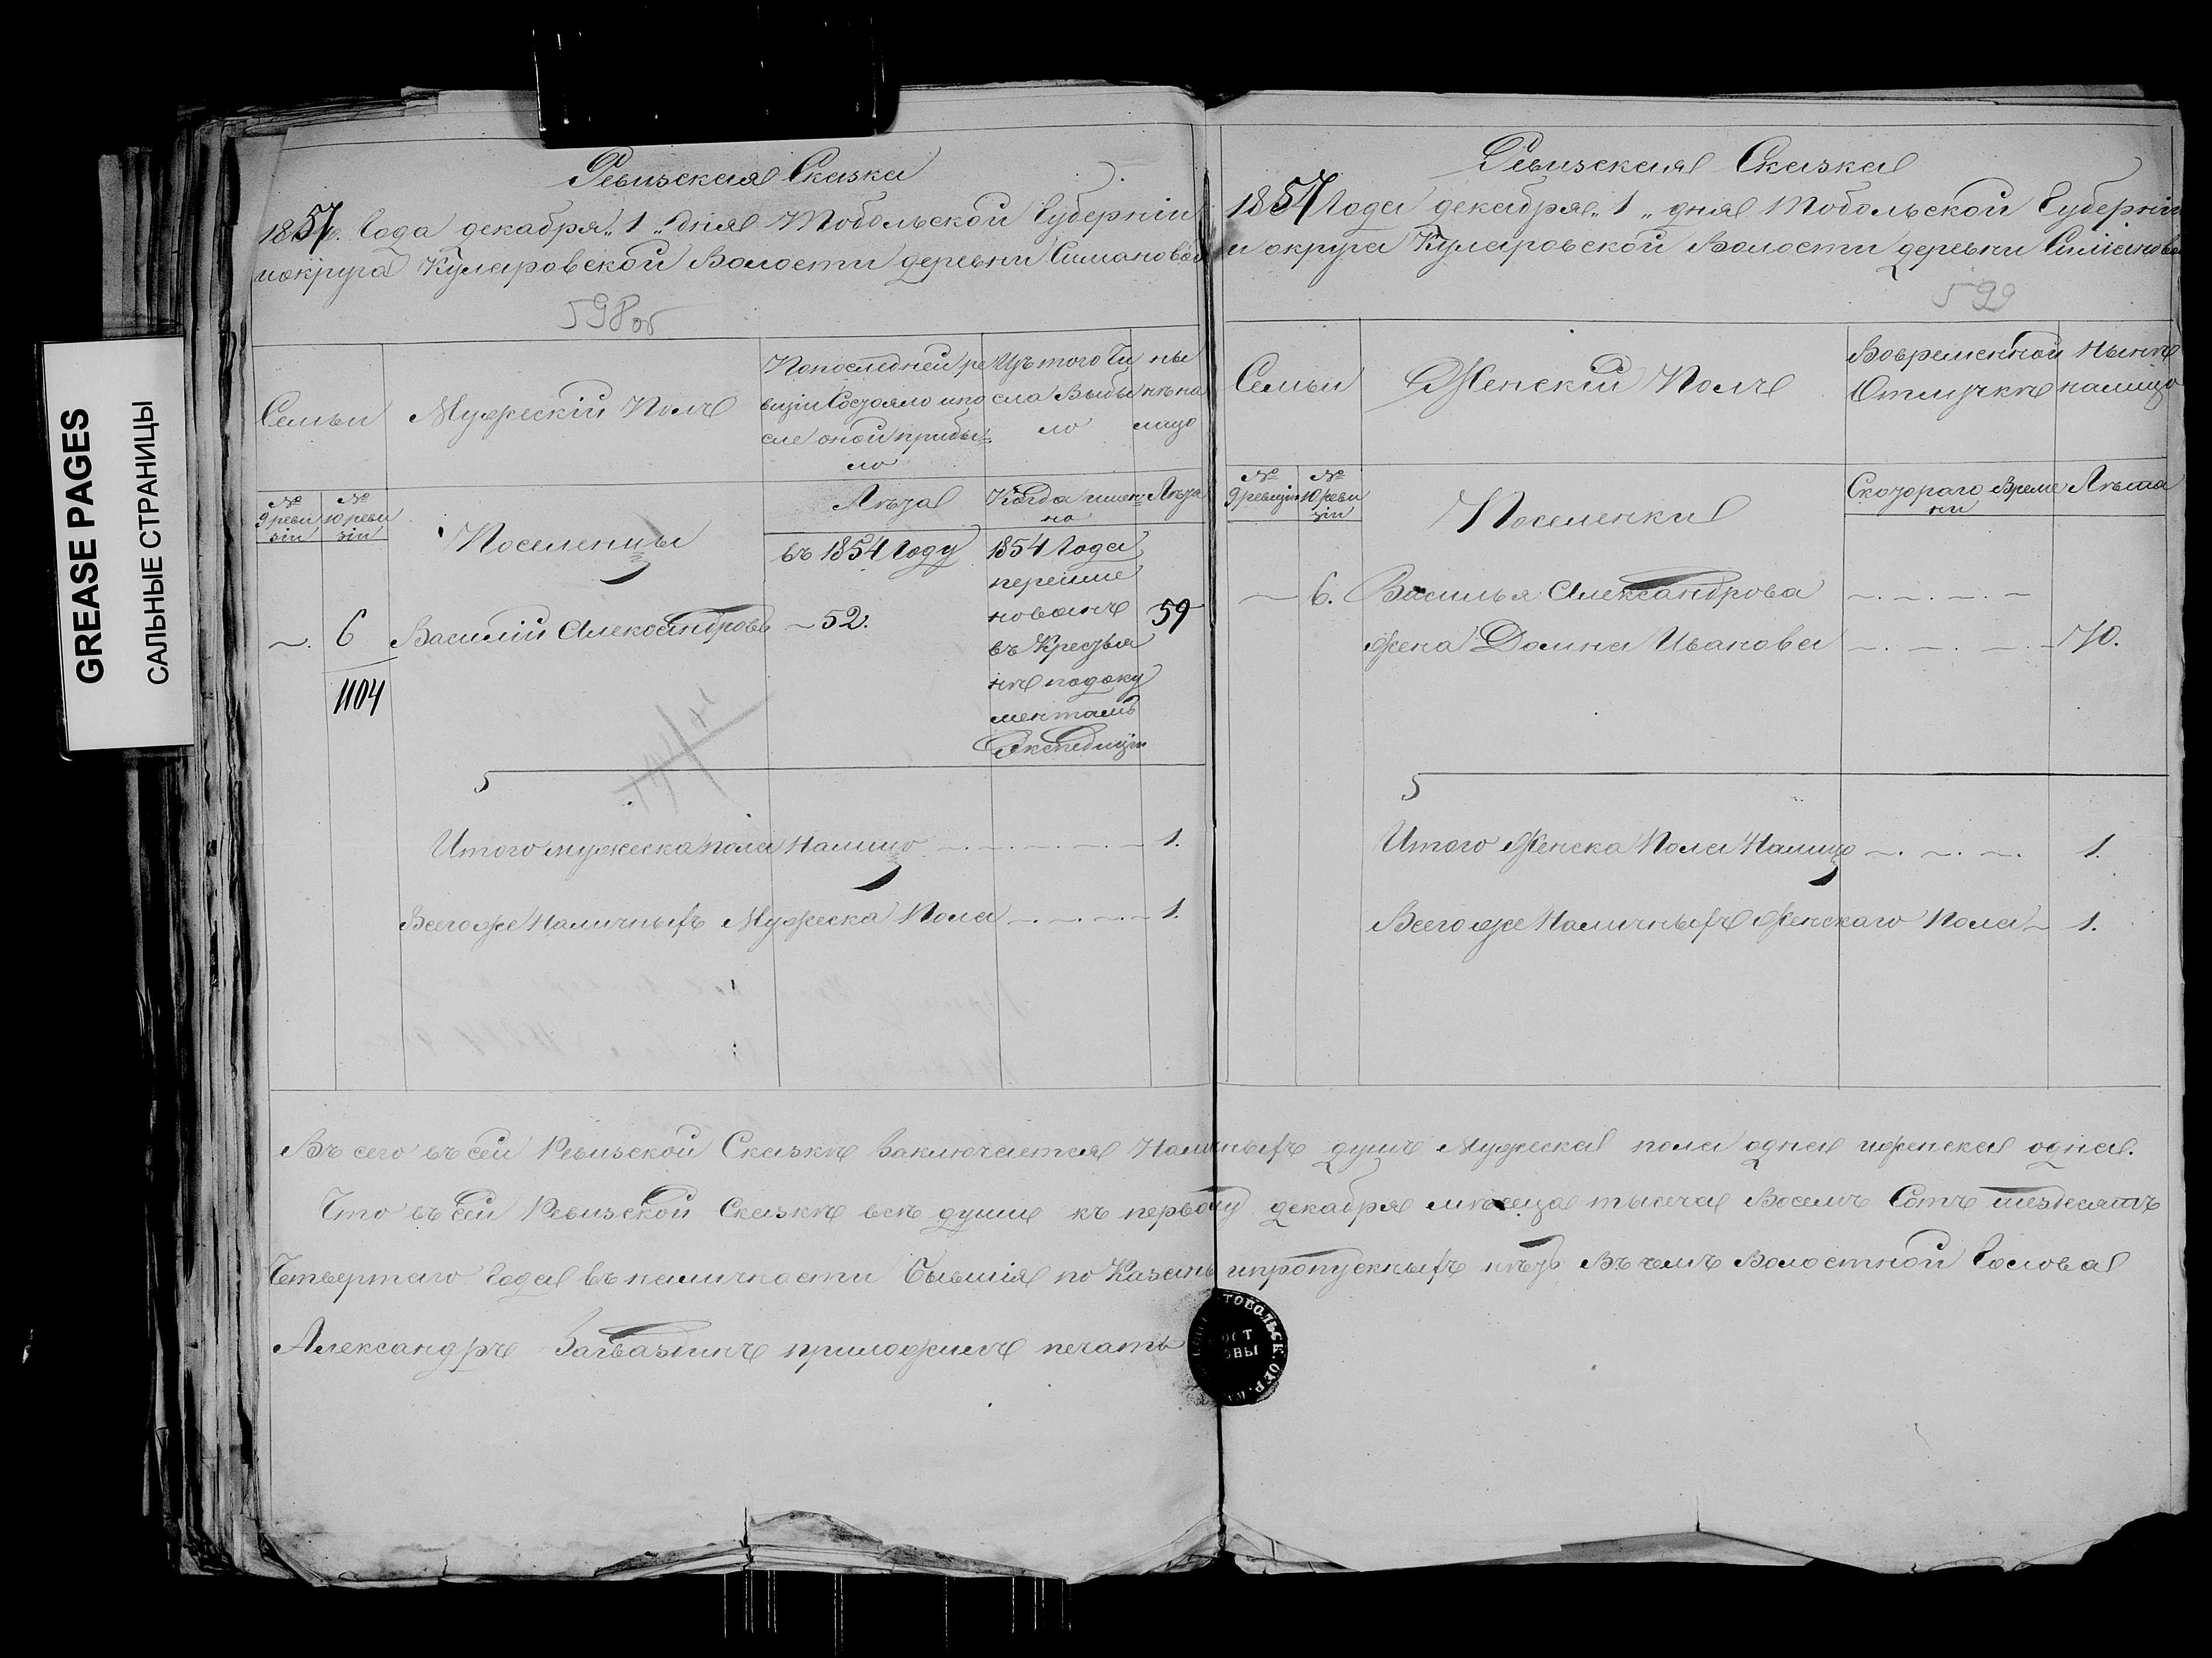 GREASE PAGES
САЛЬНЫЕ СТРАНИЦЫ
Ревизская Сказка
1857. Года декабря „1„ дня Тобольской Губерніи
и округа Куларовской Волости деревни Симановой
598об
Семьи
Мужескій Полъ
По последней ре
визіи Состояло и по
сле оной прибы=
ло
Изъ того Чи
сла Выбы
ло
ны
нѣ на
лицо
№ 9 реви зіи
№ 10 реви зіи
Поселенцы
Лѣта
Когда имен=
но
Лѣта
въ 1854 Году
1854 Года
переиме
нованъ
въ Крестья
нѣ по доку
ментамъ
Экспедиціи
—. 6 Василій Александровъ — 52. 59
1104
Итого мужеска пола Налицо — . — . — . — 1.
Всего же Наличныхъ Мужеска Пола — . — . — 1.
Ревизская Сказка
1857 Года декабря „1„ дня Тобольской Губерніи
и округа Куларовской Волости деревни Симановой
599
Семьи
Женскій Полъ
Во временной
Отлучкѣ
Нынѣ
налицо
№ 9 ревизіи
№ 10 реви зіи
Поселенки
Скотораго Време
ни
Лѣта
— 6. Василья Александрова — . — . — . —
жена Домна Иванова — . — . — . — 70.
Итого Женска Пола Налицо — . — . — . 1.
Всего же Наличныхъ Женскаго Пола — 1.
Въ сего въ сей Ревизской Сказкѣ Заключается Наличныхъ душъ Мужеска пола одна и женска одна.
Что въ сей Ревизской Сказкѣ всѣ души къ первому декабря мѣсяца тысяча Восемъ Сотъ шездесятъ
Четвертаго Года въ наличности Бывшія по Казань и пропускныхъ нѣтъ Въ чемъ Волостной Голова
Александръ Загваздинъ приложилъ печать
ТОБОЛЬСК. ОКР.